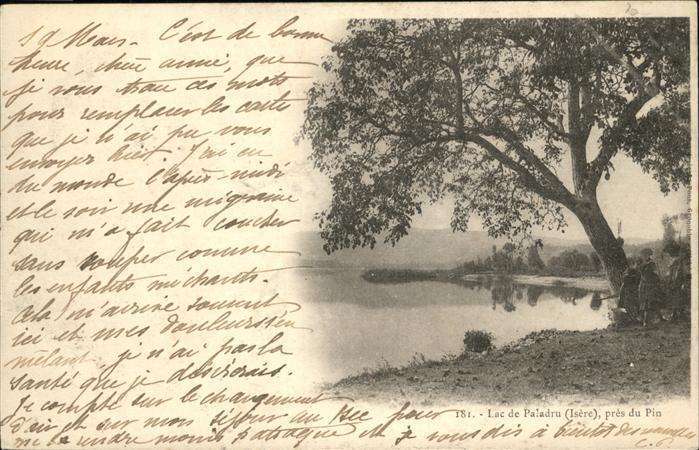 19 Mars. C'est de bonne
heure, chère amie, que
je vous trace ces mots
pour remplacer les carte
que je n'ai pu vous
envoyer hier. J'ai eu
du monde l'après midi
et le soir une migraine
qui m'a fait coucher
sans souper comme
les enfants méchants.
Cela m'arrive souvent
ici et mes douleurs s'en
mêlant je n'ai pas la
santé que je désirerais.
Je compte sur le changement
d'air et sur mon séjour au pour
me rendre moins patraque et je vous dis à bientôt des
181. - Lac de Paladru (Isère), près du Pin